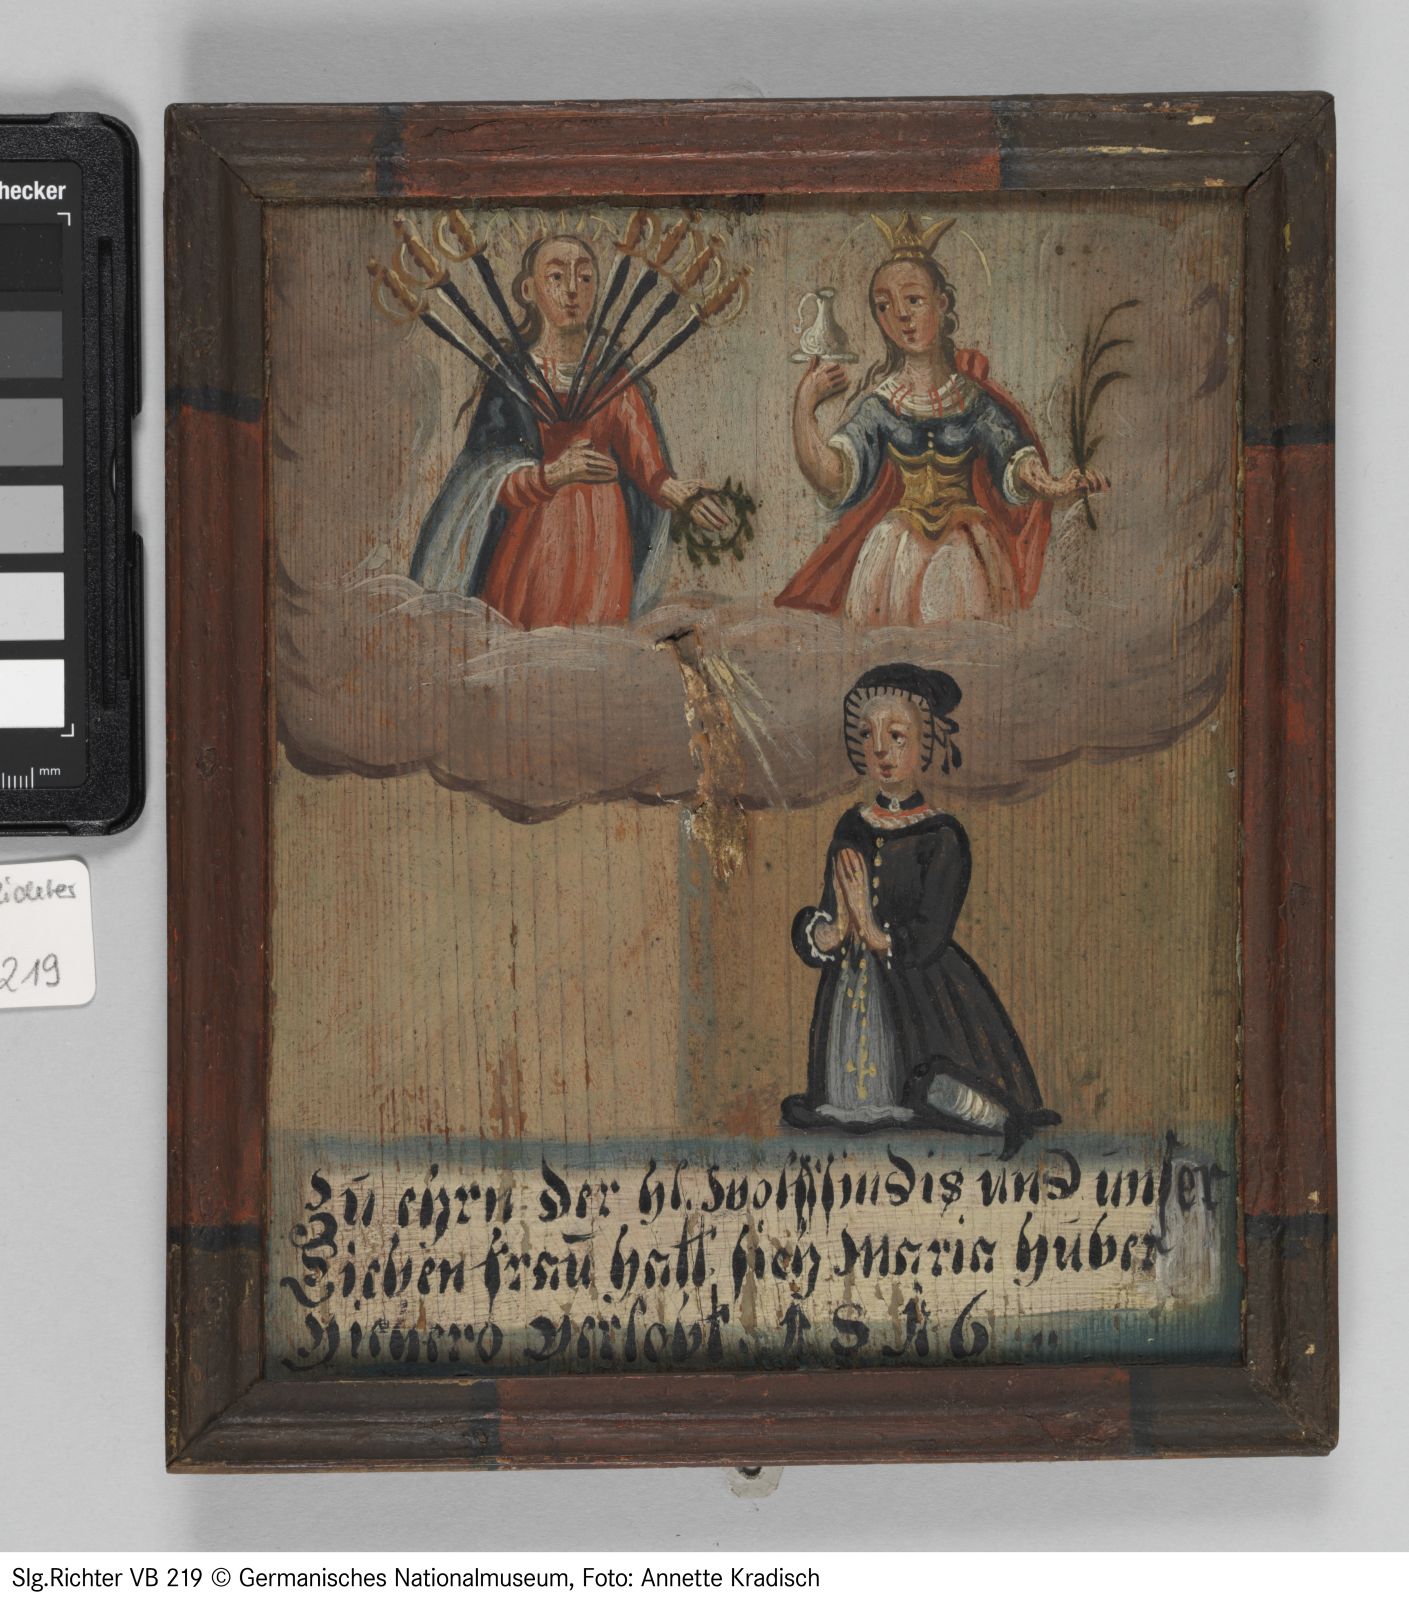 hecker
mm
219
Zu ehrn der hl. Wolfsindis und unser
Lieben frau hatt sich Maria huber
verlobt. 1816
Slg.Richter VB 219 © Germanisches Nationalmuseum, Foto: Annette Kradisch